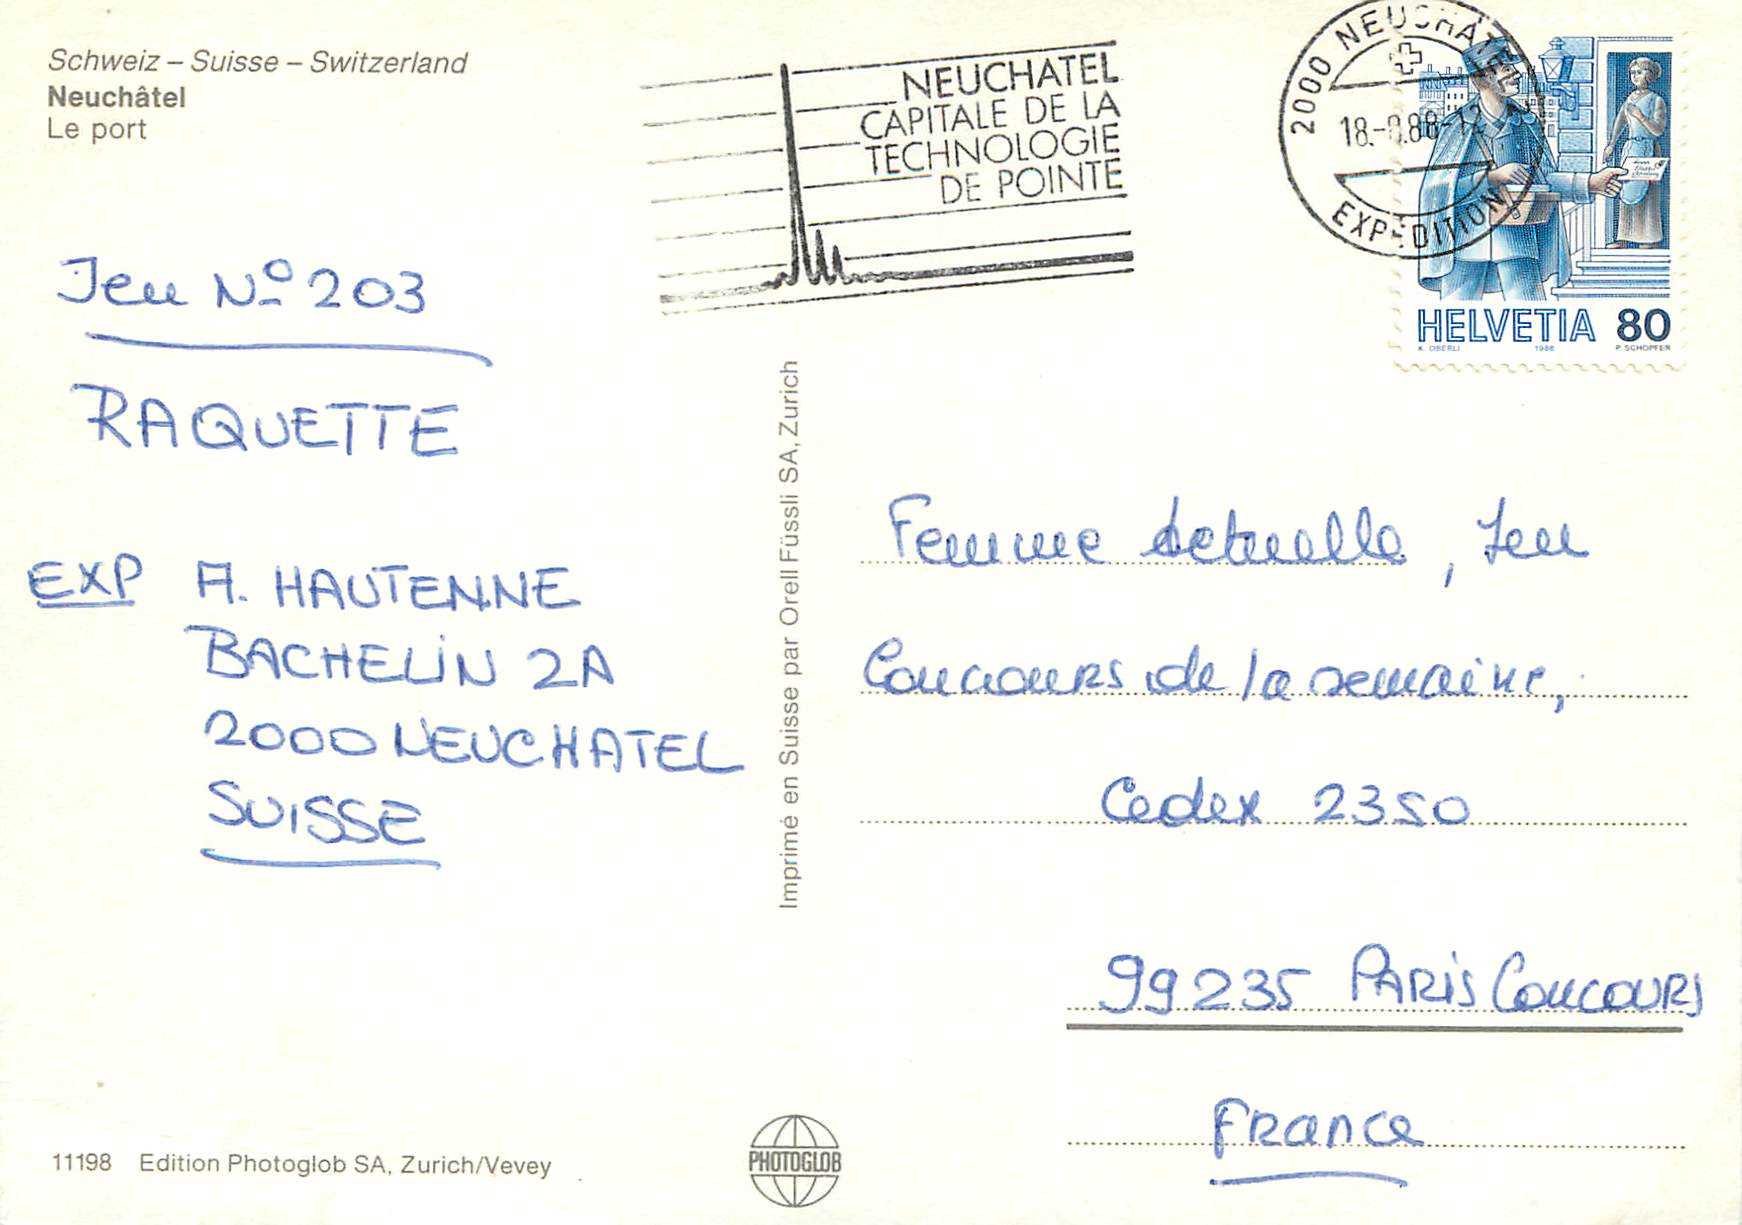 Schweiz – Suisse – Switzerland
Neuchâtel
Le port
NEUCHATEL
CAPITALE DE LA
TECHNOLOGIE
DE POINTE
2000 NEUCHÂTEL
18.- .88-12
EXPEDITION
HELVETIA 80
K. OBERLI 1986 P. SCHOPFER
Jeu No 203
RAQUETTE
EXP A. HAUTENNE
BACHELIN 2A
2000 NEUCHATEL
SUISSE
Imprimé en Suisse par Orell Füssli SA, Zurich
Femme Actuelle, Jeu
Concours de la semaine,
Cedex 2350
99235 PARIS CONCOURS
France
11198 Edition Photoglob SA, Zurich/Vevey
PHOTOGLOB